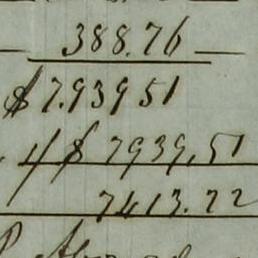 388.76
$ 7.939 51
$ 7939,51
7413.22